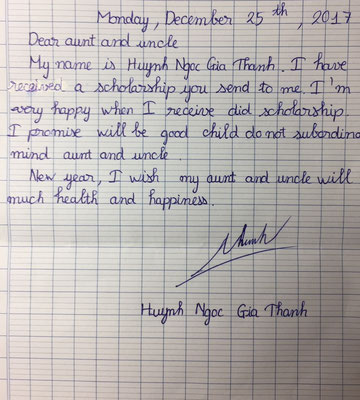 Monday, December 25th, 2017
Dear aunt and uncle
My name is Huynh Ngoc Gia Thanh. I have
received a scholarship you send to me. I'm
very happy when I receive did scholarship.
I promise will be good child do not subordina
mind aunt and uncle.
New year, I wish my aunt and uncle will
much health and happiness.
Huynh Ngoc Gia Thanh